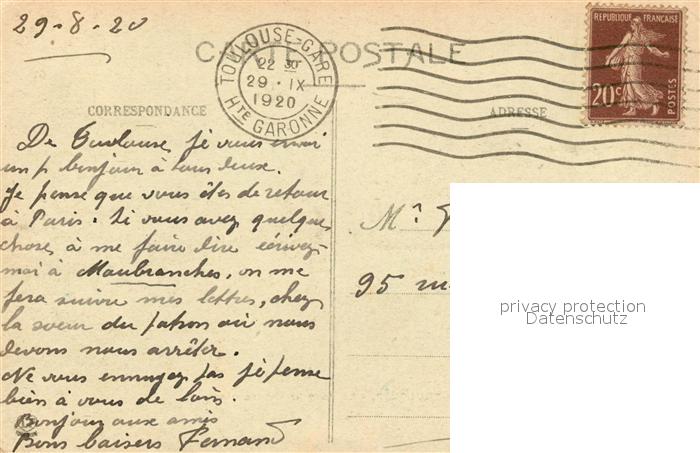 29-8-20
CARTE POSTALE
TOULOUSE-GARE
22 30
29 · IX
1920
Hte GARONNE
REPUBLIQUE FRANÇAISE
20c
POSTES
CORRESPONDANCE
De Toulouse, je vous envoi
un p bonjour à tous deux.
Je pense que vous êtes de retour
à Paris. Si vous avez quelque
chose à me faire dire écrivez-
moi à Maubranches, on me
fera suivre mes lettres, chez
la soeur du patron où nous
devons nous arrêter.
Ne vous ennuyez pas je pense
bien à vous de loin.
Bonjour aux amis
Bons baisers Fernand
ADRESSE
Mr
95
privacy protection
Datenschutz